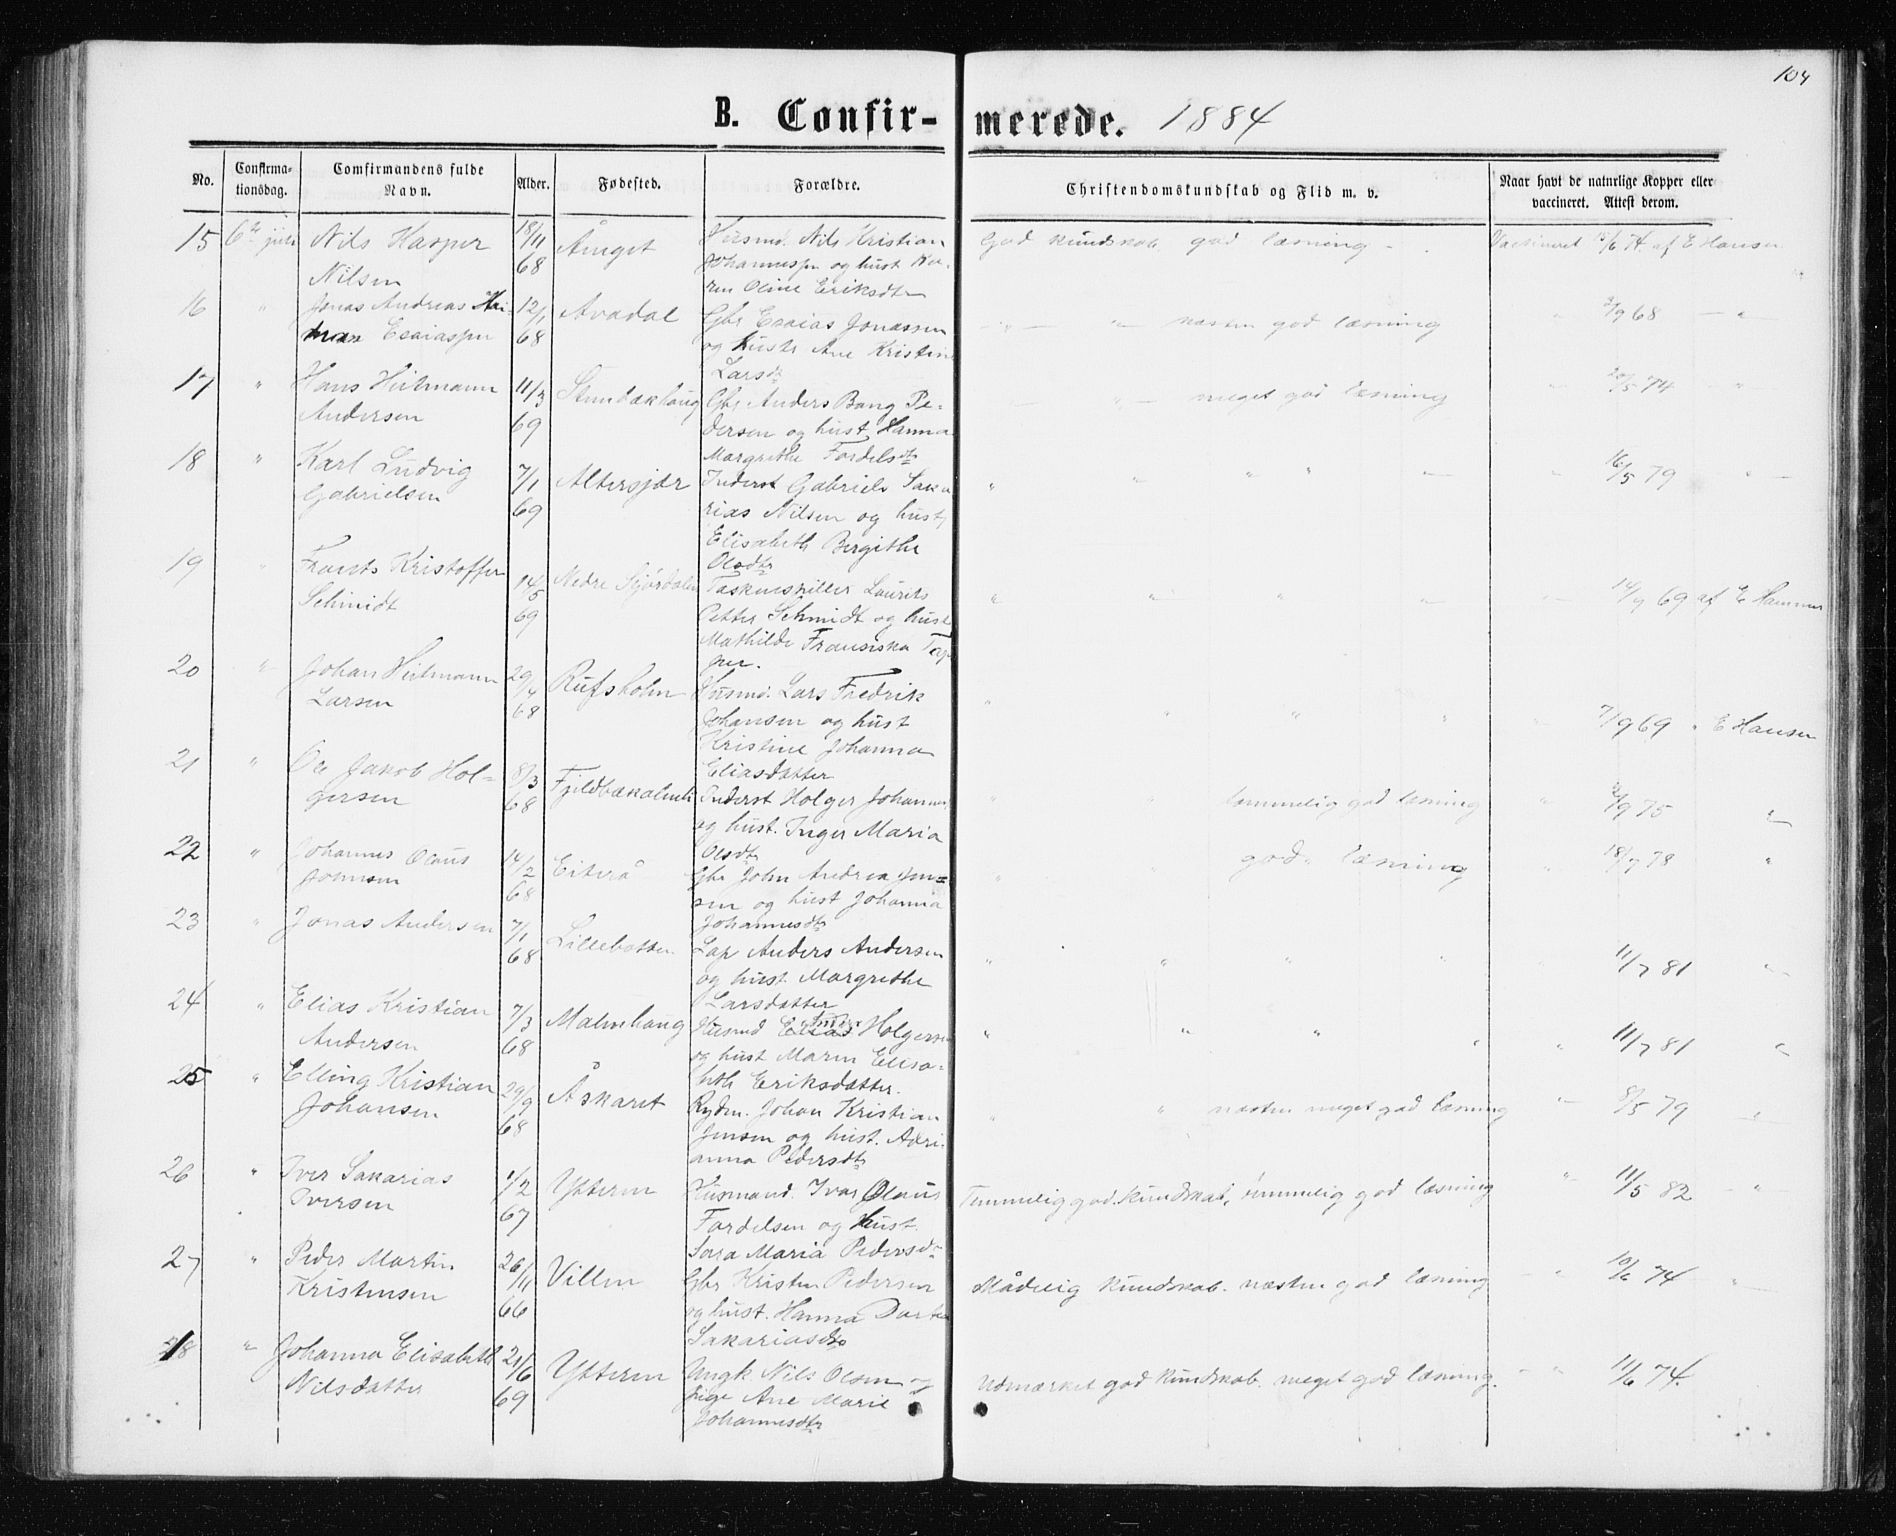 104
B. Confir- merede. 1884
No. Confirma- Comfirmandens fulde Alder. Fødested. Forældre. Christendomskundskab og Flid m. v. Naar havt de naturlige Kopper eller
tionsdag. Navn. vaccineret. Attest derom.
15 6te juli Nils Kasper 18/11 Ånget Husmd. Nils Kristian God kundskab. god læsning - Vaksineret 15/6 74 af E Hansen
Nilsen 68 Johannessen og hust
Oline Eriksdtr
16 " Jonas Andreas 12/1 Avadal Gbr Esaias Jonassen - " - " næsten god læsning " 2/9 68 - "
Esaiassen 68 og hustr Ane Kristine
Larsdtr
17 " Hans Hitmann 11/3 Gbr Anders Bang Pe- " - meget god læsning 74 "
Andersen 69 dersen og hust Hanna
Margrethe Fordelsdtr
18 " Karl Ludvig 7/1 Altersjær Inderst Gabriel Saka " " " " - " 16/5 79 " -
Gabrielsen 69 rias Nilsen og hust
Elisabeth Bergithe
Olsdtr
19 " Kristoffer 14/5 Nedre Stjørdalen Laurits " " " " 14/9 69 af E Hammer
Schmidt 69 Petter Schmidt og hust
Mathilde Fransiska
20 " Johan Hitmann 29/4 Rufsholm Husmd. Lars Fredrik " " " " " 7/9 69 " E Hansen
Larsen 68 Johansen og hust
Kristine Johanna
Eliasdatter
21 " Ole Jakob Hol- 8/3 Inderst Holger Johannes " " temmelig god læsning " 75 "
gersen 68 og hust. Inger Maria
Olsdtr
22 " Johannes Olaus 14/2 Eiterå Gbr John Andrea Jon= " god. læsning " 18/7 78 "
Johnsen 68 sen og hust Johanna
Johannesdtr
23 " Jonas Andersen 7/1 Lap Anders Andersen " " " " 11/7 81 "
68 og hust Margrethe
Larsdatter
24 " Elias Kristian 7/3 Malmhaug Husmd Anders Holgersen " " " " " 11/7 81 "
Andersen 68 og hust Maren Elisa-
beth Eriksdatter.
25 " Elling Kristian 29/9 Åskaret Rydn. Johan Kristian " " næsten meget god læsning " 8/5 79 "
Johansen 68 Jensen og hust. Adri-
anna Pedersdtr
26 " Iver Sakarias 1/2 Ytteren Husmand. Ivar Olaus Temmelig god. kundskab, temmelig god læsning " 11/5 82 - "
Iversen 67 Fordelsen og Hust.
Sara Maria Pedersdtr
27 " Peder Martin 26/11 Villen Gbr Kristen Pedersen Mådelig kundskab. næsten god læsning - " 10/6 74 "
Kristensen 66 og hust. Hanna
Sakariasdtr
18 " Johanna Elisabeth 21/6 Ytteren Ungk. Nils Olsen og Udmærket god kundskab. meget god læsning. - " 11/6 74.
Nilsdatter 69 pige Ane Marie
Johannesdtr